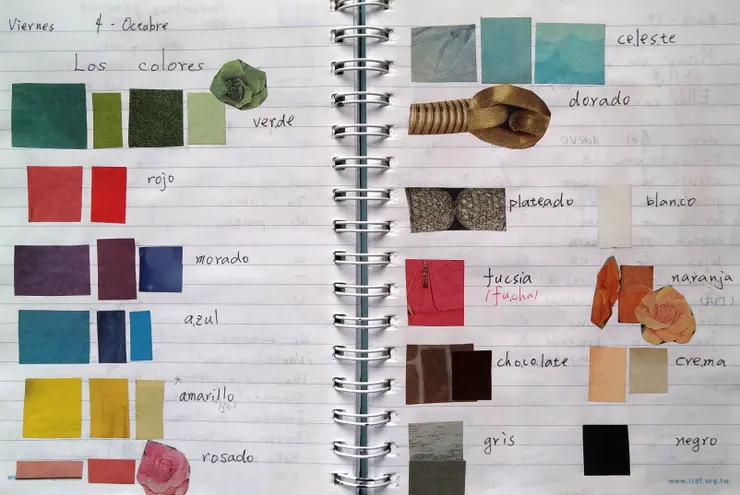 Viernes 4 - Octubre
Los colores
ver,de
rojo
morado
a,zul
amarillo
rosado
ce,les,te
dorado
plateado
blan,co
fucsia
/fu,cha/
naranja
cho,co,late
cre,ma
gris
negro
www.icdf.org.tw